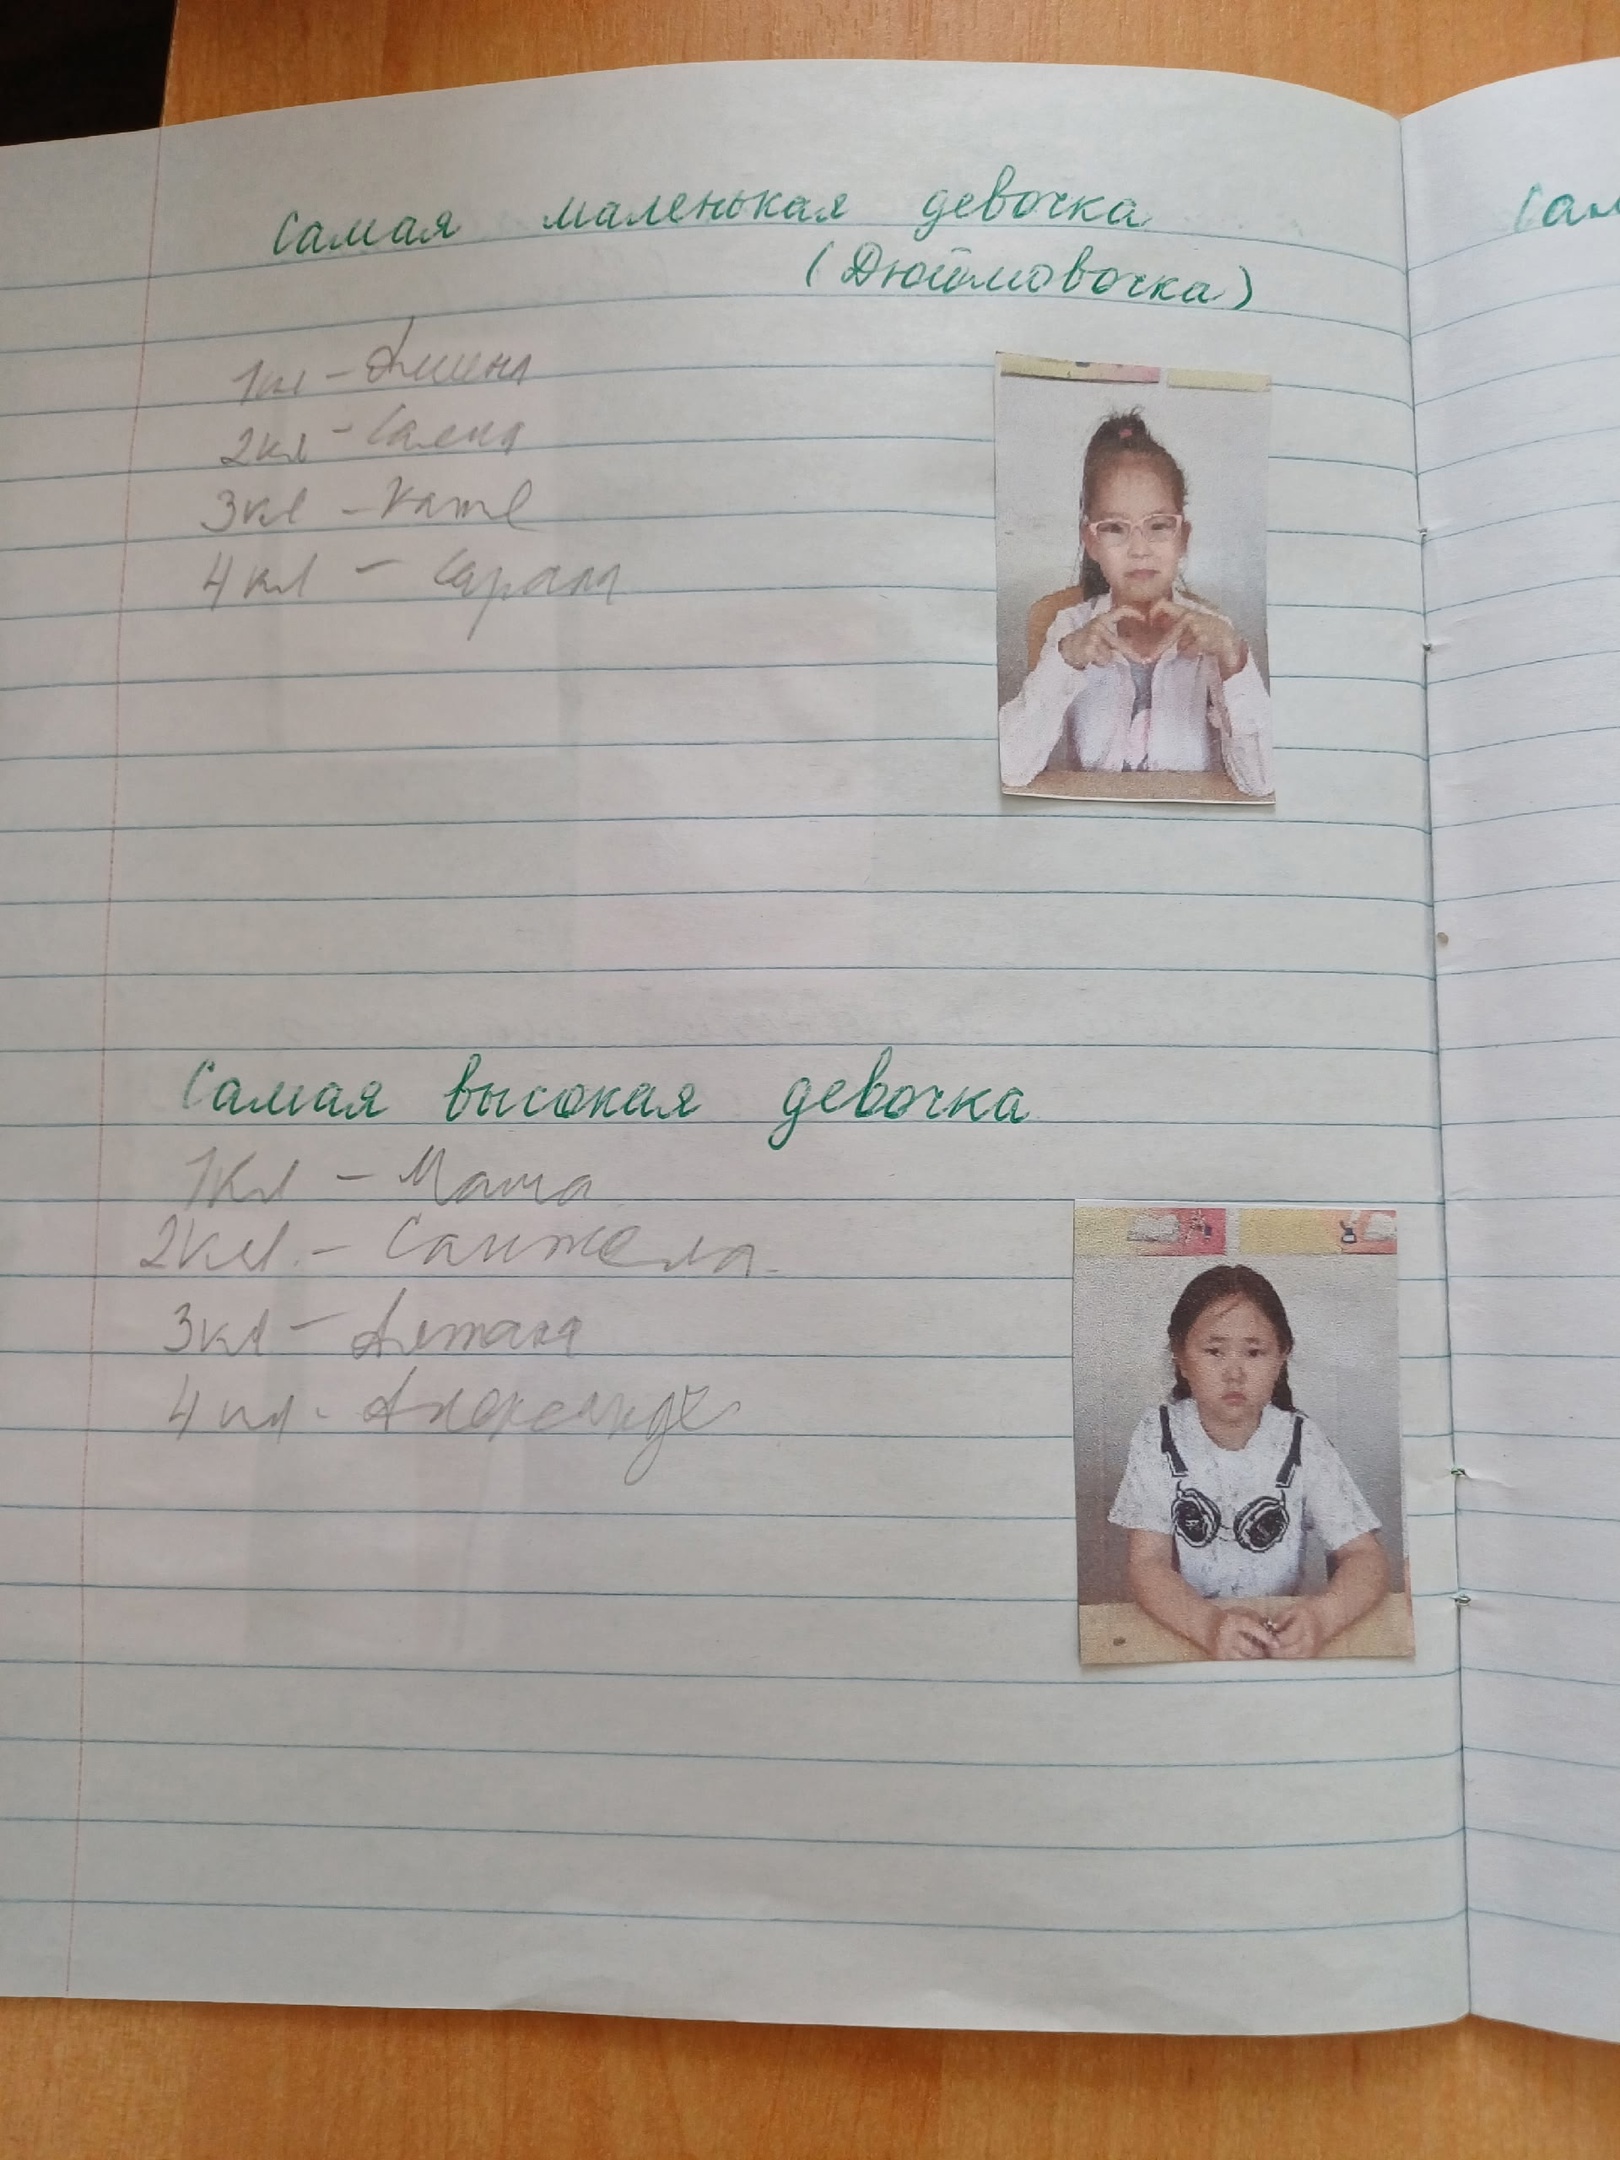 Самая маленькая девочка
(Дюймовочка)
1кл - Амина
2кл - Саяна
3кл - Катя
4кл -
Самая высокая девочка
1кл - Маша
2кл. - Санжела
3кл - Алтана
4кл -
Сам